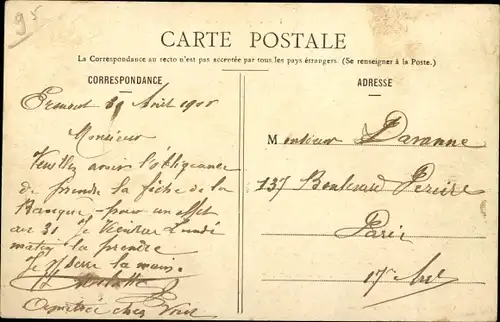 95
CARTE POSTALE
La Correspondance au recto n'est pas acceptée par tous les pays étrangers. (Se renseigner à la Poste.)
CORRESPONDANCE
ADRESSE
Avril
Monsieur
Veuillez avoir l'obligeance
de prendre la fiche de la
Banque pour un effet
au 31 Je viendrai Lundi
matin la prendre
Je serre la main.
chez Vous
Monsieur Davanne
137 Boulevard Pereire
Paris
17 Arr